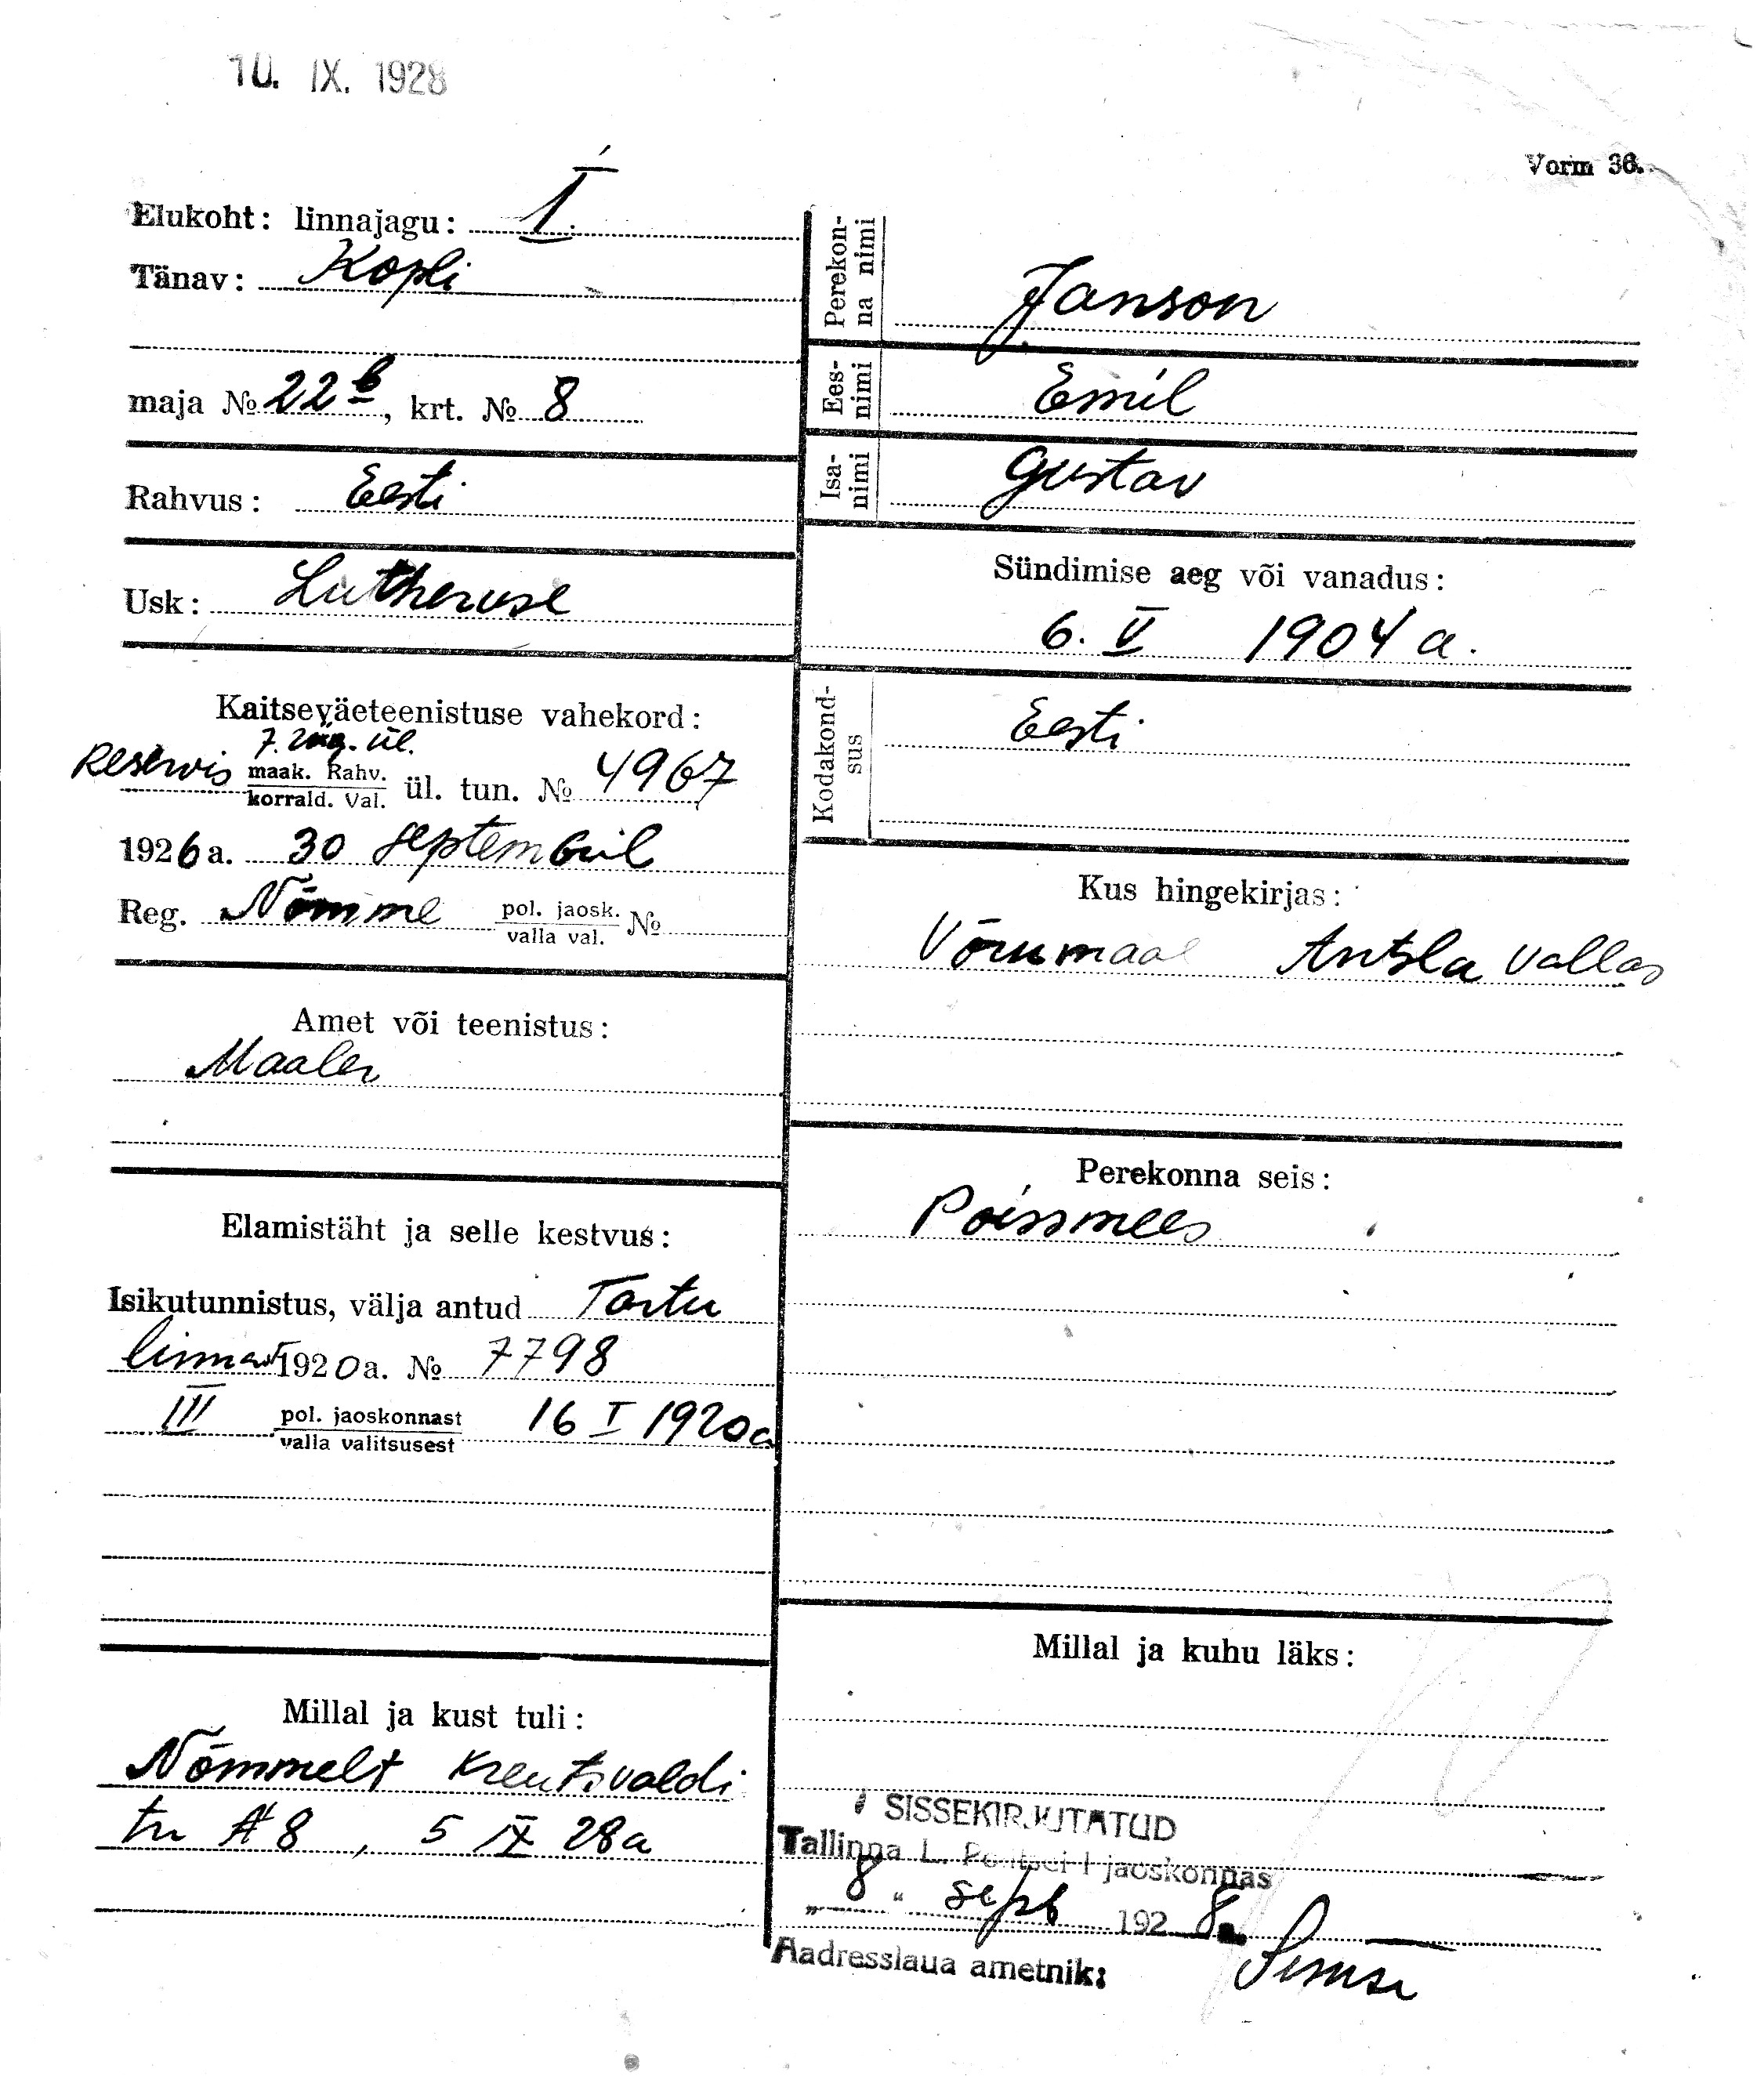 10. IX. 1928
Vorm 36.
Elukoht: linnajagu: I.
Tänav: Kopli
maja № 22 b, krt. № 8
Rahvus: Eesti
Usk: Lutheruse
Kaitseväeteenistuse vahekord:
7. ül.
Reservis maak. Rahv. korrald. Val. ül. tun. № 4967
1926 a. 30 septembril
Reg. Nõmme pol. jaosk. valla val. №
Amet või teenistus:
Maaler
Elamistäht ja selle kestvus:
Isikutunnistus, välja antud Tartu
linnast 1920 a. № 7798
III pol. jaoskonnast valla valitsusest 16 I 1920 a
Millal ja kust tuli:
Nõmmelt Kreutsvaldi
tn № 8, 5 IX 28 a
Perekonna nimi
Janson
Eesnimi
Emil
Isanimi
Gustav
Sündimise aeg või vanadus:
6. V 1904 a.
Kodakondsus
Eesti
Kus hingekirjas:
Võrumaal Antsla vallas
Perekonna seis:
Poissmees
Millal ja kuhu läks:
SISSEKIRJUTATUD
Tallinna L. Politsei I jaoskonnas
„ 8 " sept 1928 a.
Aadresslaua ametnik: